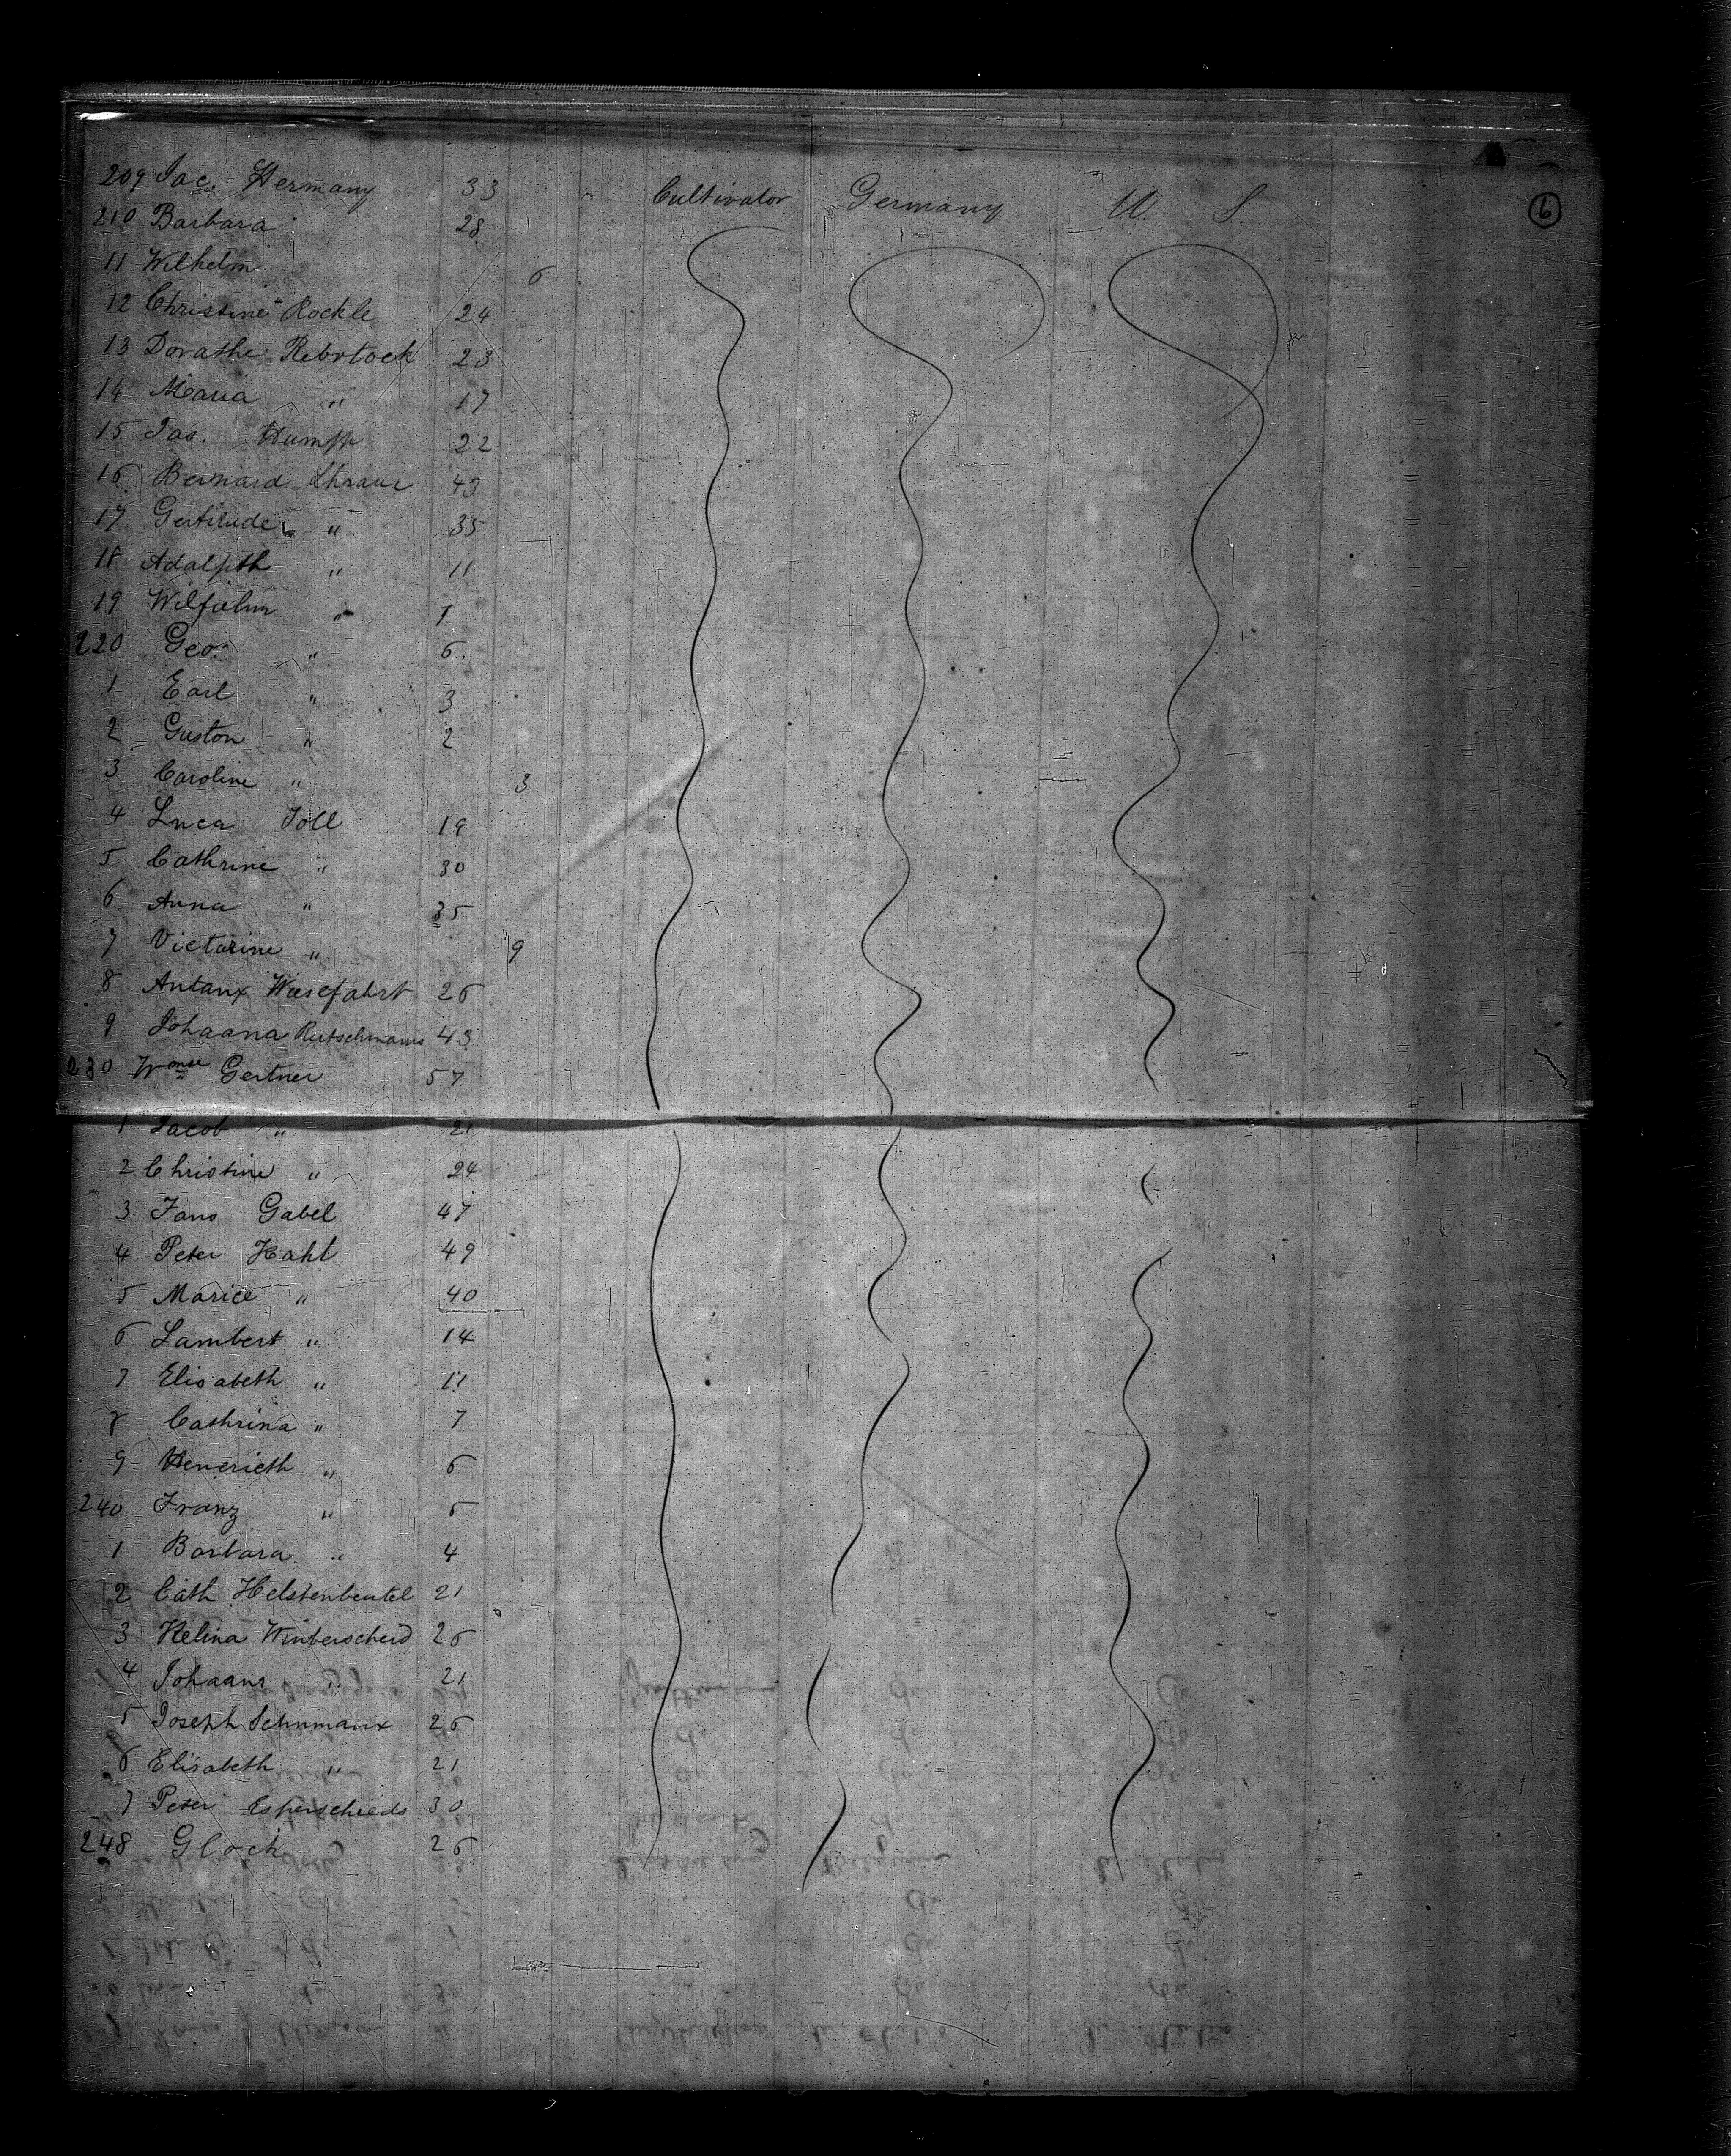 209 Jac. Hermany 33 Cultivator Germany U. S. 6
210 Barbara 28
11 Wilhelm 6
12 Christine Rockle 24
13 Dorathe Rebstock 23
14 Maria " 17
15 Jas. Humph 22
16 Bernard 43
17 Gertrude " 35
18 Adalpth " 11
19 Wilhelm "
220 Geo. " 6
1 Earl " 3
2 Guston " 2
3 Caroline " 3
4 Luca Toll 19
5 Cathrine " 30
6 Anna " 35
7 Victorine " 9
8 Antanx Wiesefahrt 26
9 Johaana Rutschmanns 43
230 Gertner 57
1 Jacob " 21
2 Christine " 24
3 Fans Gabel 47
4 Peter Kahl 49
5 Marice " 40
6 Lambert " 14
7 Elisabeth " 11
8 Cathrina " 7
9 Henerieth " 6
240 Franz " 5
1 Barbara " 4
2 Cath Helstenbeutel 21
3 Helina Winterscheid 26
4 Johaans " 21
5 Joseph Schumanx 26
6 Elisabeth " 21
7 Peter Esperschieds 30
248 Glock 26